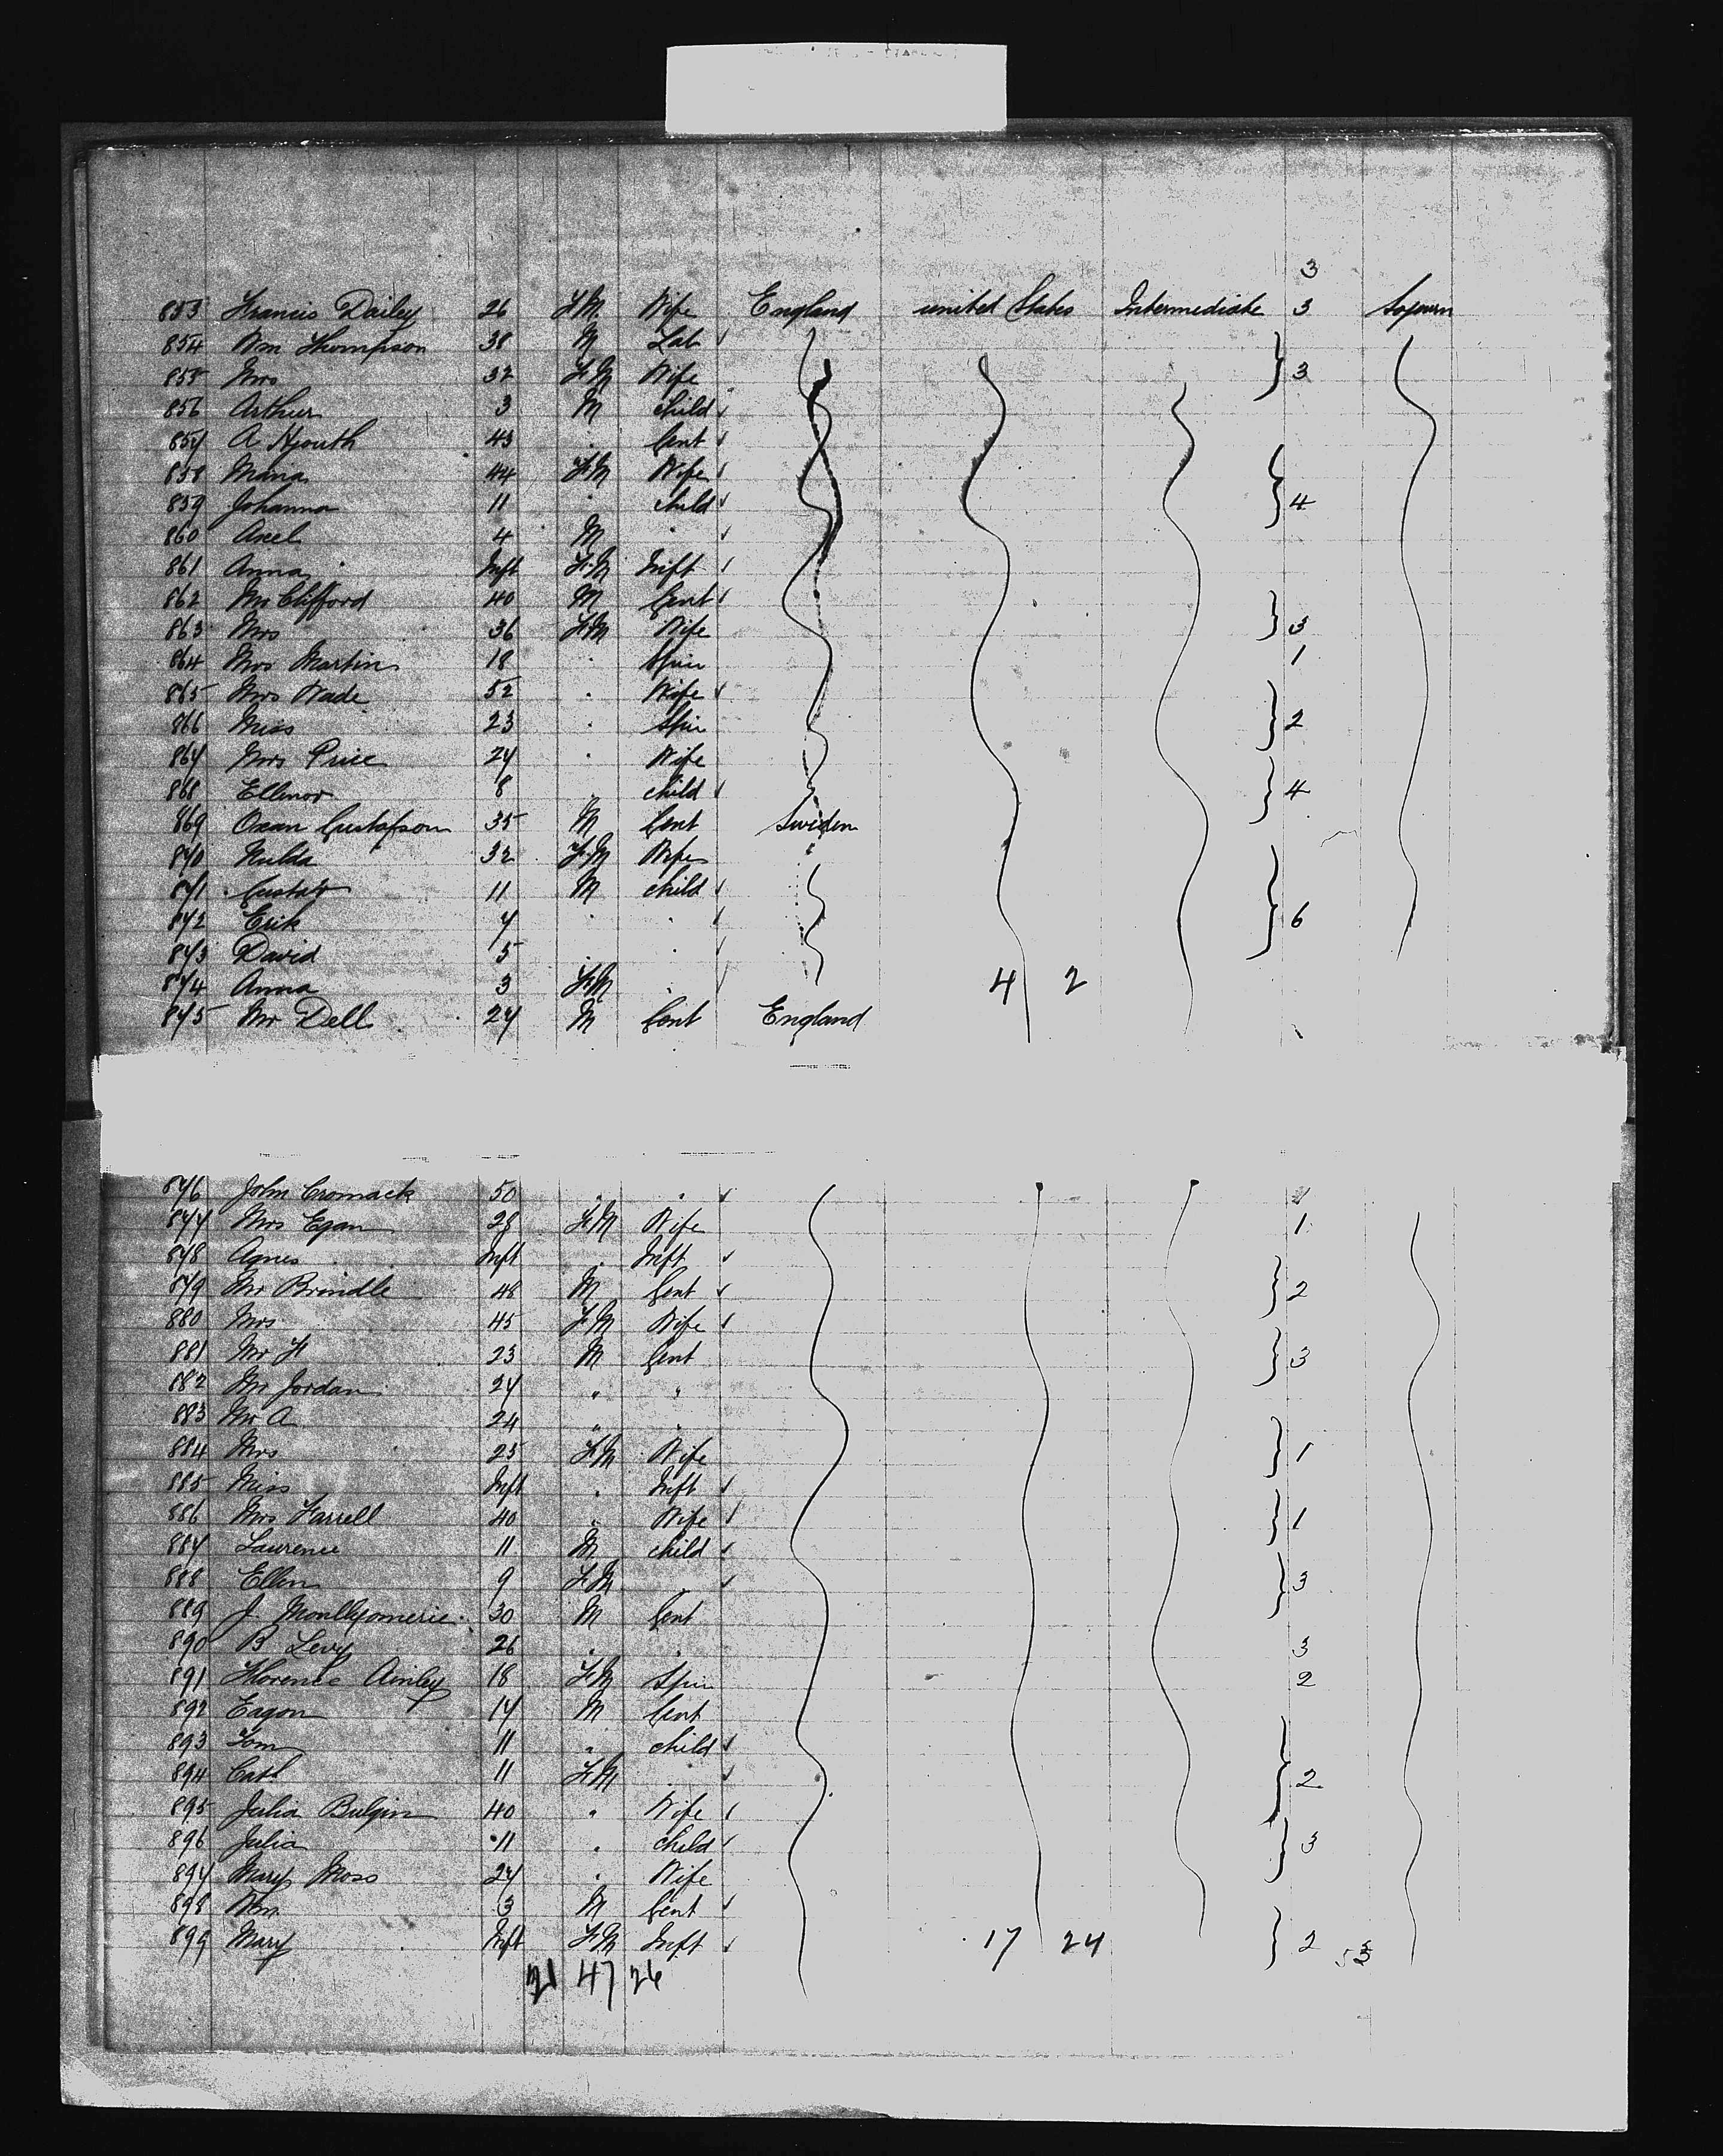 3
853 Francis Dailey 26 F.M. Wife England united States Intermediate 3 Sojourn
854 Wm Thompson 38 M Lab
855 Mrs 32 F.M Wife 3
856 Arthur 3 M child
857 A Hjouth 43 . Gent
858 Maria 44 F.M Wife
859 Johanna 11 . child 4
860 Axel 4 M .
861 Anna Inft F.M Inft
862 Mr Clifford 40 M Gent
863 Mrs 36 F.M Wife 3
864 Mrs Martin 18 . Spin 1
865 Mrs Wade 52 . Wife
866 Miss 23 . Spin 2
867 Mrs Price 27 . Wife
868 Ellenor 8 . child 4
869 Oscan Gustafson 35 M Gent Sweden
870 Hulda 32 F.M Wife
871 Gustaf 11 M child
872 Erik 7 . . 6
873 David 5 . .
874 Anna 3 F.M . 4 2
875 Mr Dell 27 M Gent England
876 John Cromack 50 . . 1
877 Mrs Egan 28 F.M Wife 1
878 Agnes Inft . Inft
879 Mr Brindle 48 M Gent 2
880 Mrs 45 F.M Wife
881 Mr H 23 M Gent 3
882 Mr Jordan 27 " "
883 Mr A 24 " .
884 Mrs 25 F.M Wife 1
885 Miss Inft . Inft
886 Mrs Farrell 40 " Wife 1
887 Laurence 11 M child
888 Ellen 9 F.M . 3
889 J. Montlgomerie 30 M Gent
890 B Levy 26 . . 3
891 Florence Ainley 18 F.M Spin 2
892 Eagon 17 M Gent
893 Tom 11 " child
894 Cath 11 F.M . 2
895 Julia Bulgin 40 " Wife
896 Julia 11 . child 3
897 Mary Moss 27 . Wife
898 Wm 3 M Gent
899 Mary Inft F.M Inft 17 24 2
21 47 26